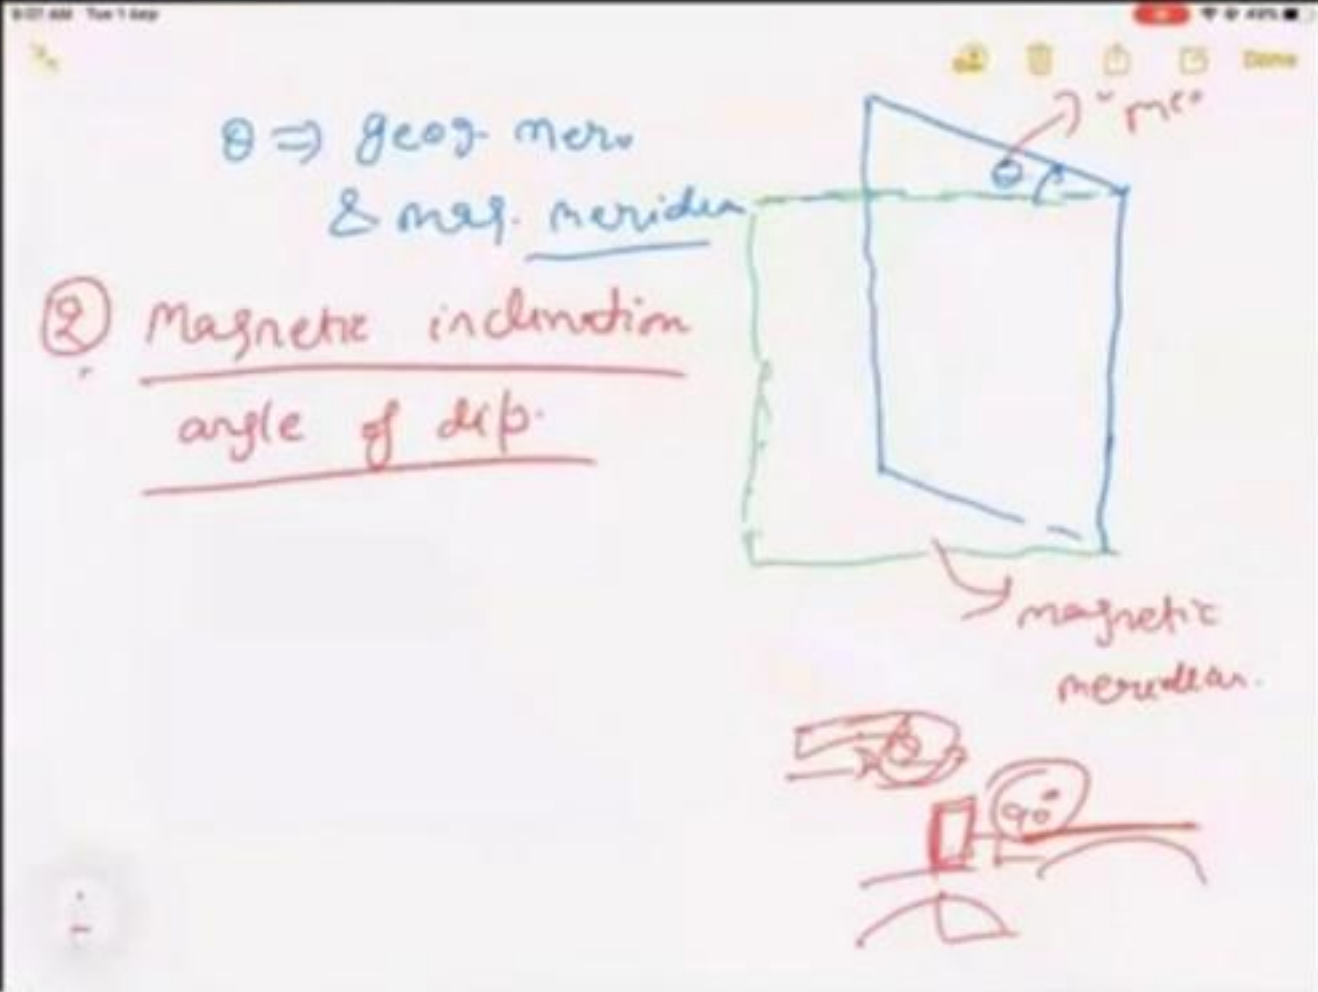 9:07 AM Tue 1 Sep
49%
Done
θ ⇒ geog. mer.
& mag. meridian
θ
② Magnetic inclination
angle of dip.
magnetic
meridian.
90°